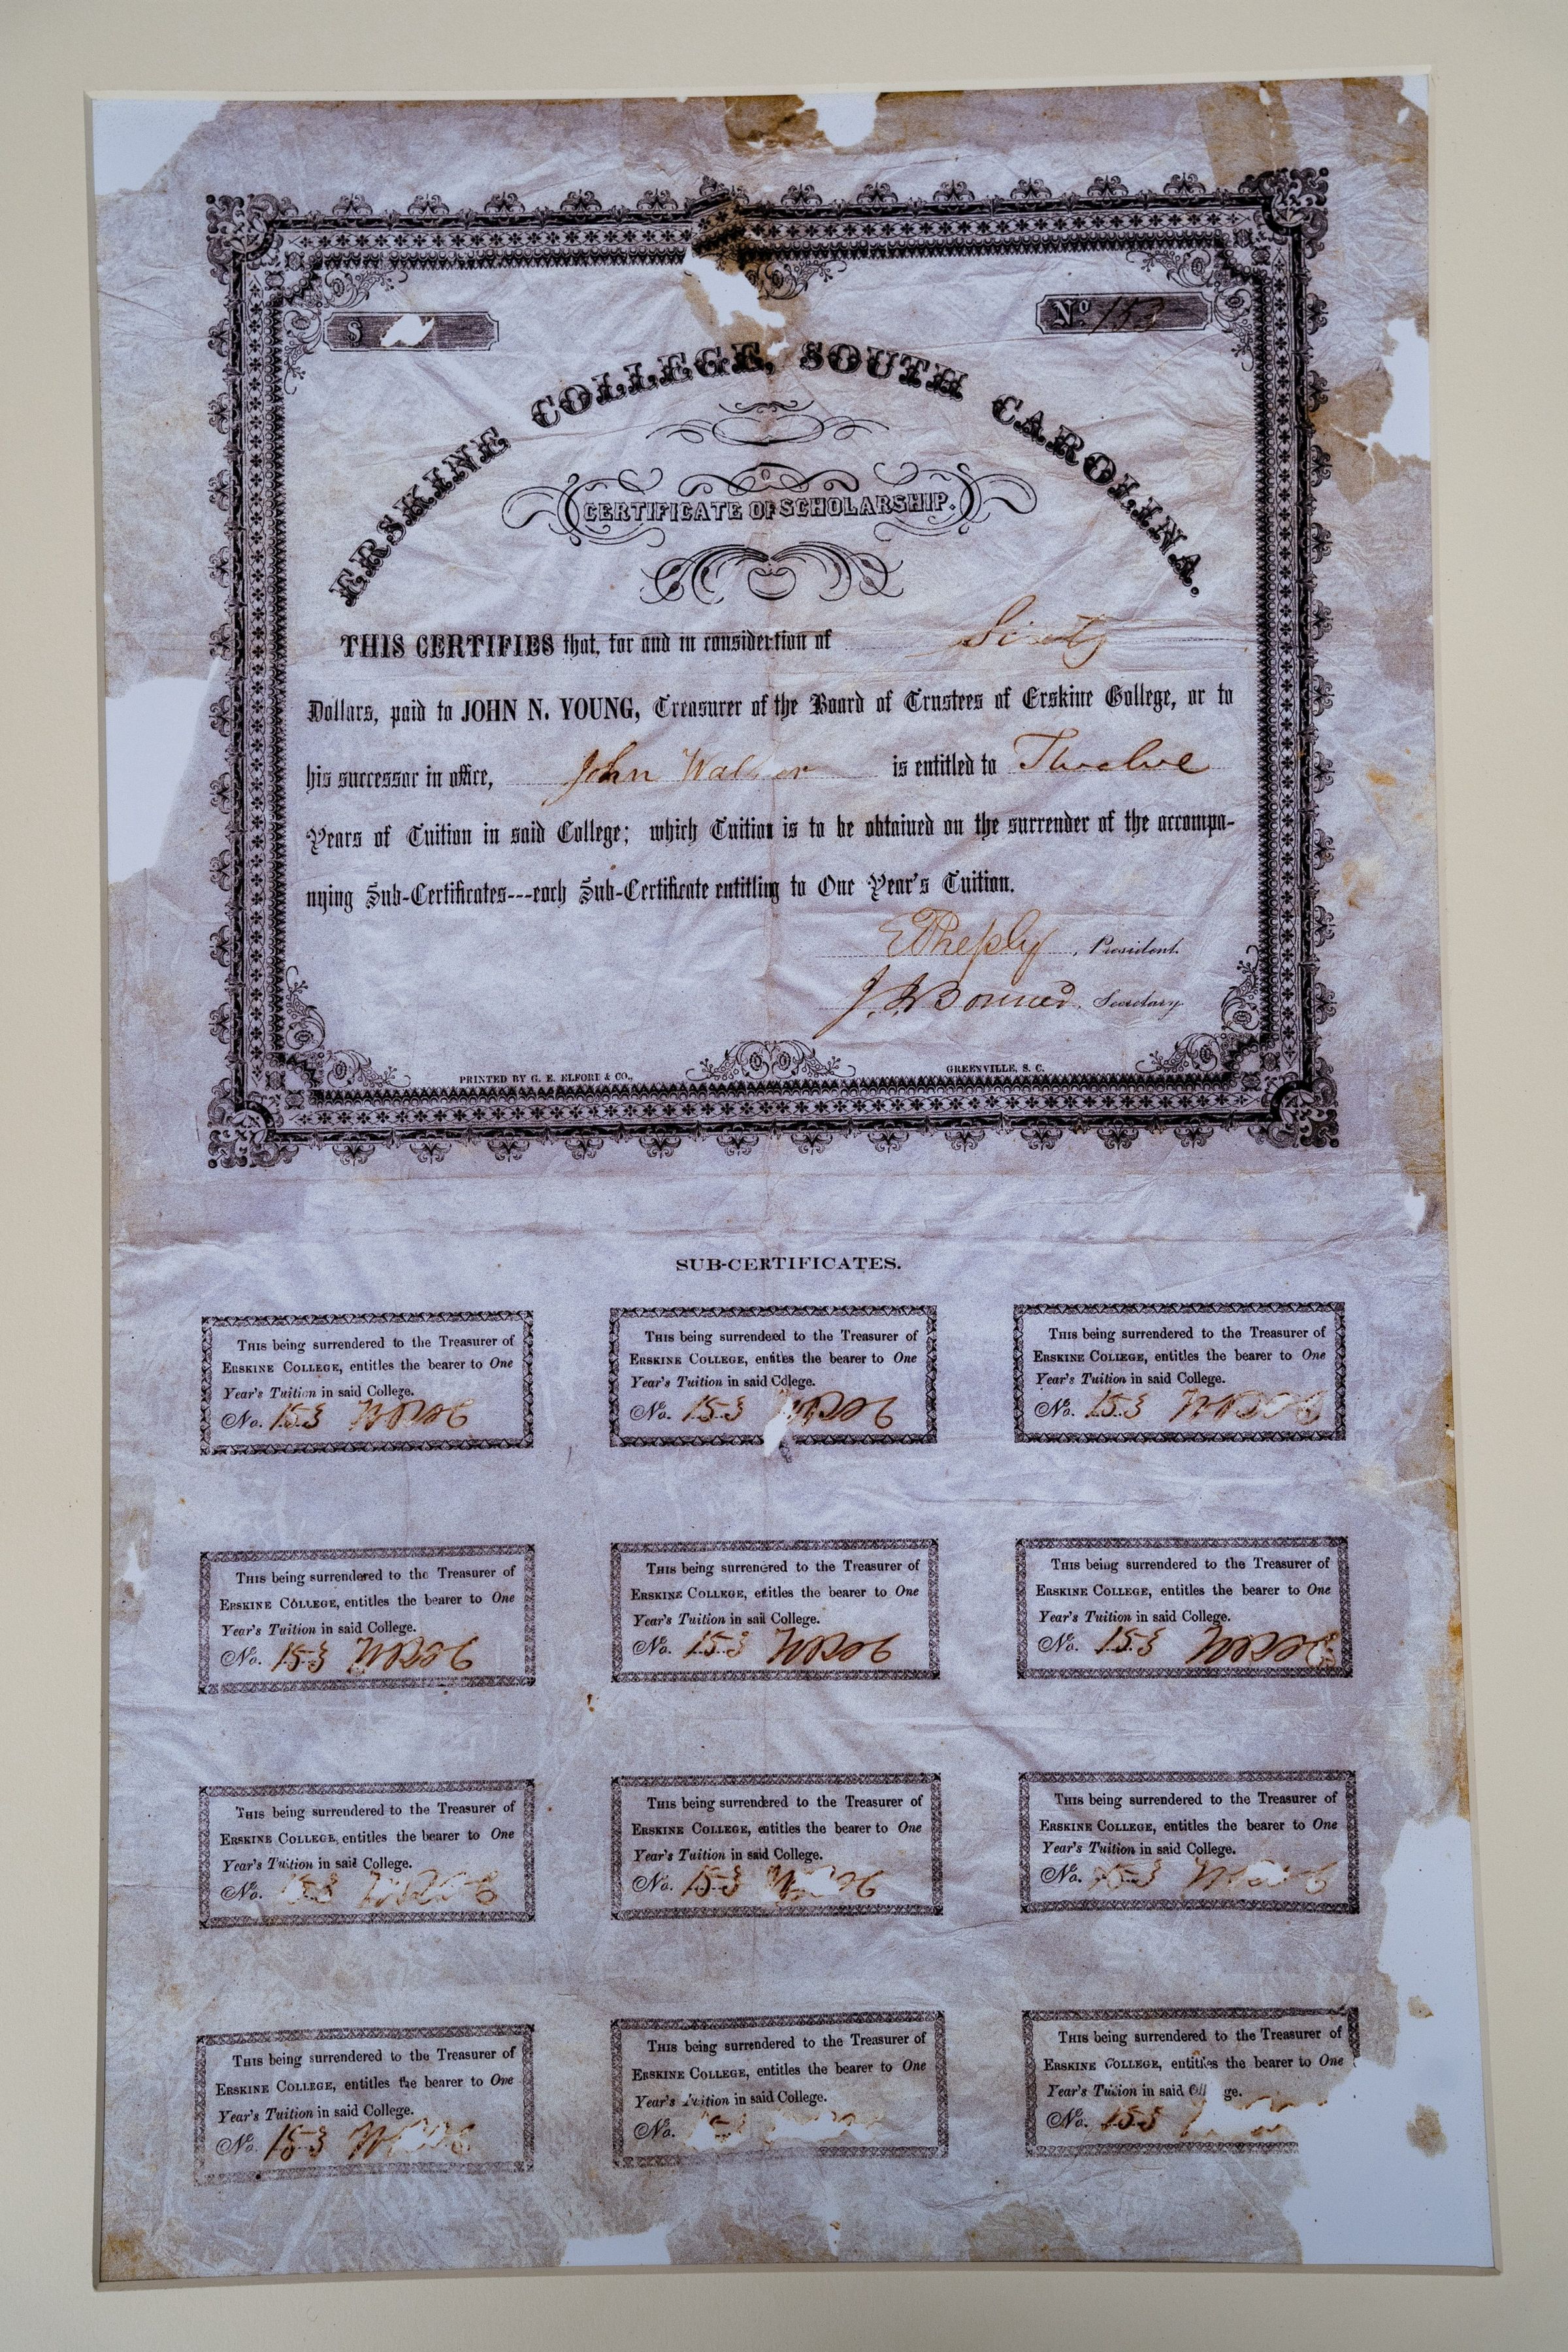 $
No. 153
ERSKINE COLLEGE, SOUTH CAROLINA.
CERTIFICATE OF SCHOLARSHIP.
THIS CERTIFIES that, for and in considertion of Sixty
Dollars, paid to JOHN N. YOUNG, Treasurer of the Board of Trustees of Erskine College, or to
his successor in office, John is entitled to Twelve
Years of Tuition in said College; which Tuition is to be obtained on the surrender of the accompa-
nying Sub-Certificates---each Sub-Certificate entitling to One Year's Tuition.
President.
J. I. Bonner, Secretary.
PRINTED BY G. E. ELFORD & CO., GREENVILLE, S. C.
SUB-CERTIFICATES.
THIS being surrendered to the Treasurer of
ERSKINE COLLEGE, entitles the bearer to One
Year's Tuition in said College.
No. 153
THIS being surrendered to the Treasurer of
ERSKINE COLLEGE, entitles the bearer to One
Year's Tuition in said College.
No. 153
THIS being surrendered to the Treasurer of
ERSKINE COLLEGE, entitles the bearer to One
Year's Tuition in said College.
No. 153
THIS being surrendered to the Treasurer of
ERSKINE COLLEGE, entitles the bearer to One
Year's Tuition in said College.
No. 153
THIS being surrendered to the Treasurer of
ERSKINE COLLEGE, entitles the bearer to One
Year's Tuition in said College.
No. 153
THIS being surrendered to the Treasurer of
ERSKINE COLLEGE, entitles the bearer to One
Year's Tuition in said College.
No. 153
THIS being surrendered to the Treasurer of
ERSKINE COLLEGE, entitles the bearer to One
Year's Tuition in said College.
No. 153
THIS being surrendered to the Treasurer of
ERSKINE COLLEGE, entitles the bearer to One
Year's Tuition in said College.
No. 153
THIS being surrendered to the Treasurer of
ERSKINE COLLEGE, entitles the bearer to One
Year's Tuition in said College.
No. 153
THIS being surrendered to the Treasurer of
ERSKINE COLLEGE, entitles the bearer to One
Year's Tuition in said College.
No. 153
THIS being surrendered to the Treasurer of
ERSKINE COLLEGE, entitles the bearer to One
Year's Tuition in said College.
No.
THIS being surrendered to the Treasurer of
ERSKINE COLLEGE, entitles the bearer to One
Year's Tuition in said
No. 153